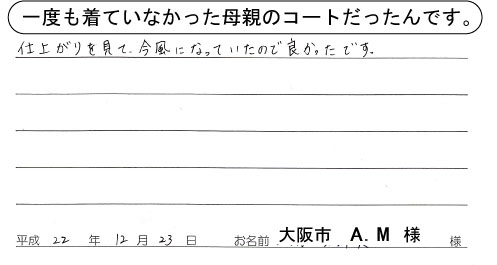 一度も着ていなかった母親のコートだったんです。
仕上がりを見て、今風になっていたので良かったです。
平成 22 年 12 月 23 日 お名前 大阪市 A.M 様 様